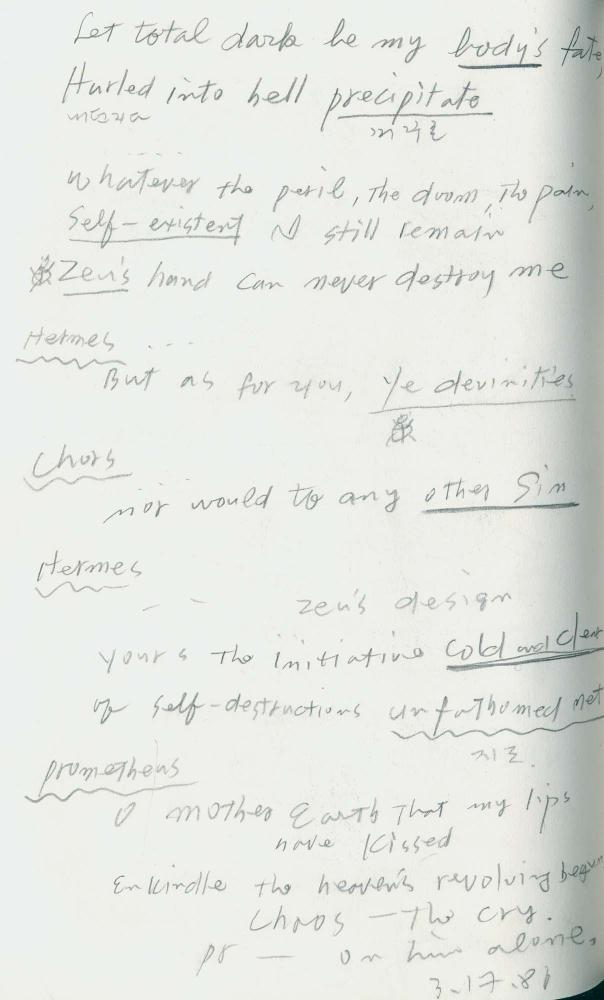 Let total dark be my body's fate,
Hurled into hell precipitate
whatever the peril, The doom, The pain,
Self-existent I still remain
Zeu's hand can never destroy me
Hermes ...
But as for you, Ye devinities
Chors
nor would to any other Sin
Hermes
- - Zeu's design
yours The initiative Cold and Clear
of self-destructions unfathomed net
지로.
prometheus
O mother Earth That my lips
have kissed
Enkindle the heaven's revolving begun
Choos - The cry.
pr - on him alone.
3.17.81